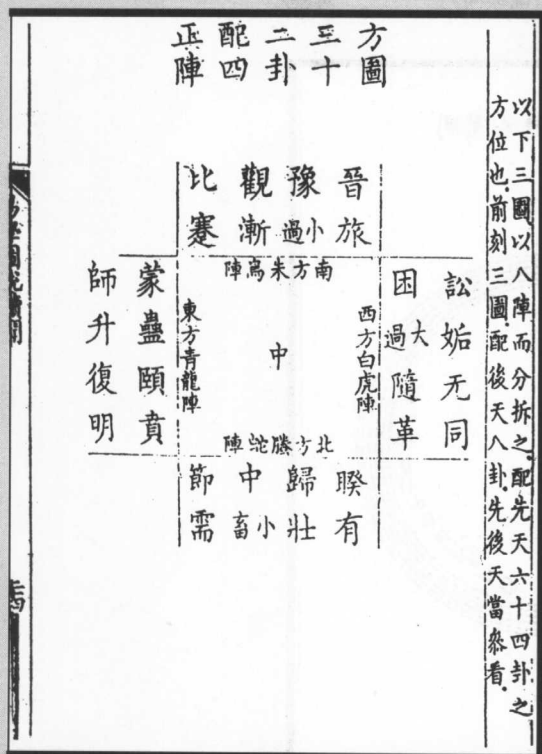 以下三圖以八陣而分拆之.配先天六十四卦之
方位也.前刻三圖.配後天八卦.先後天當叅看.
方圖
三十
二卦
配四
正陣
晉旅
豫小過
觀漸
比蹇
南方朱鳥陣
訟姤无同
困大過隨革
西方白虎陣
中
東方青龍陣
蒙蠱頤賁
師升復明
北方螣蛇陣
睽有
歸壯
中小畜
節需